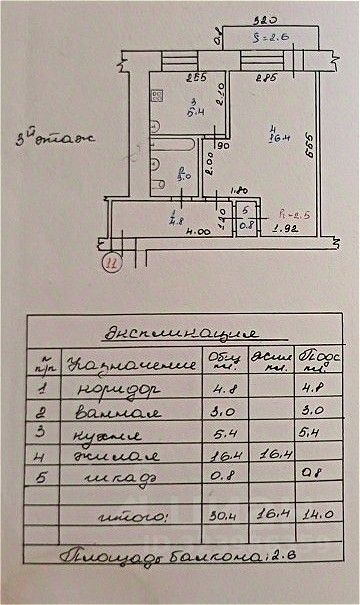 320
0.8
S=2.6
255
285
3
5.4
2.10
4
16.4
5.55
3й этаж
90
2.00
2
3.0
1.80
1
4.8
1.20
5
0.8
h=2.5
4.00
1.92
11
Экспликация
№ п/п Назначение Общ пл. Жил пл. Подс пл.
1 коридор 4.8 4.8
2 ванная 3.0 3.0
3 кухня 5.4 5.4
4 жилая 16.4 16.4
5 шкаф 0.8 0.8
итого: 30.4 16.4 14.0
Площадь балкона: 2.6